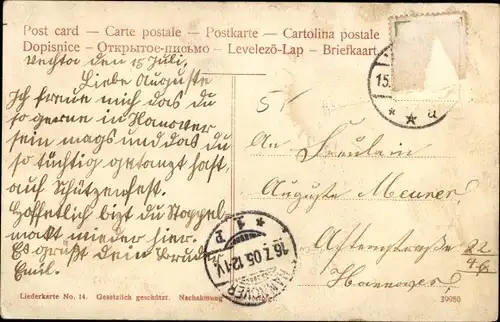 Post card — Carte postale — Postkarte — Cartolina postale
Dopisnice — Открытое-письмо — Levelező-Lap — Briefkaart
Vechta den 15 Juli.
Liebe Auguste
Ich freue mich das du
so gerne in Hanover
sein mags und das du
so tüchtig getanzt hast,
auf Schützenfest.
Hoffentlich bist du Stoppel
markt wieder hier.
Es grüßt dein Bruder
Emil.
5
An
Freulein
Auguste Meurer
22
Hannover
15.
* * a
HANNOVER
16.7.05.12-1V.
* 1 p
Liederkarte No. 14. Gesetzlich geschützt. Nachahmung
39950